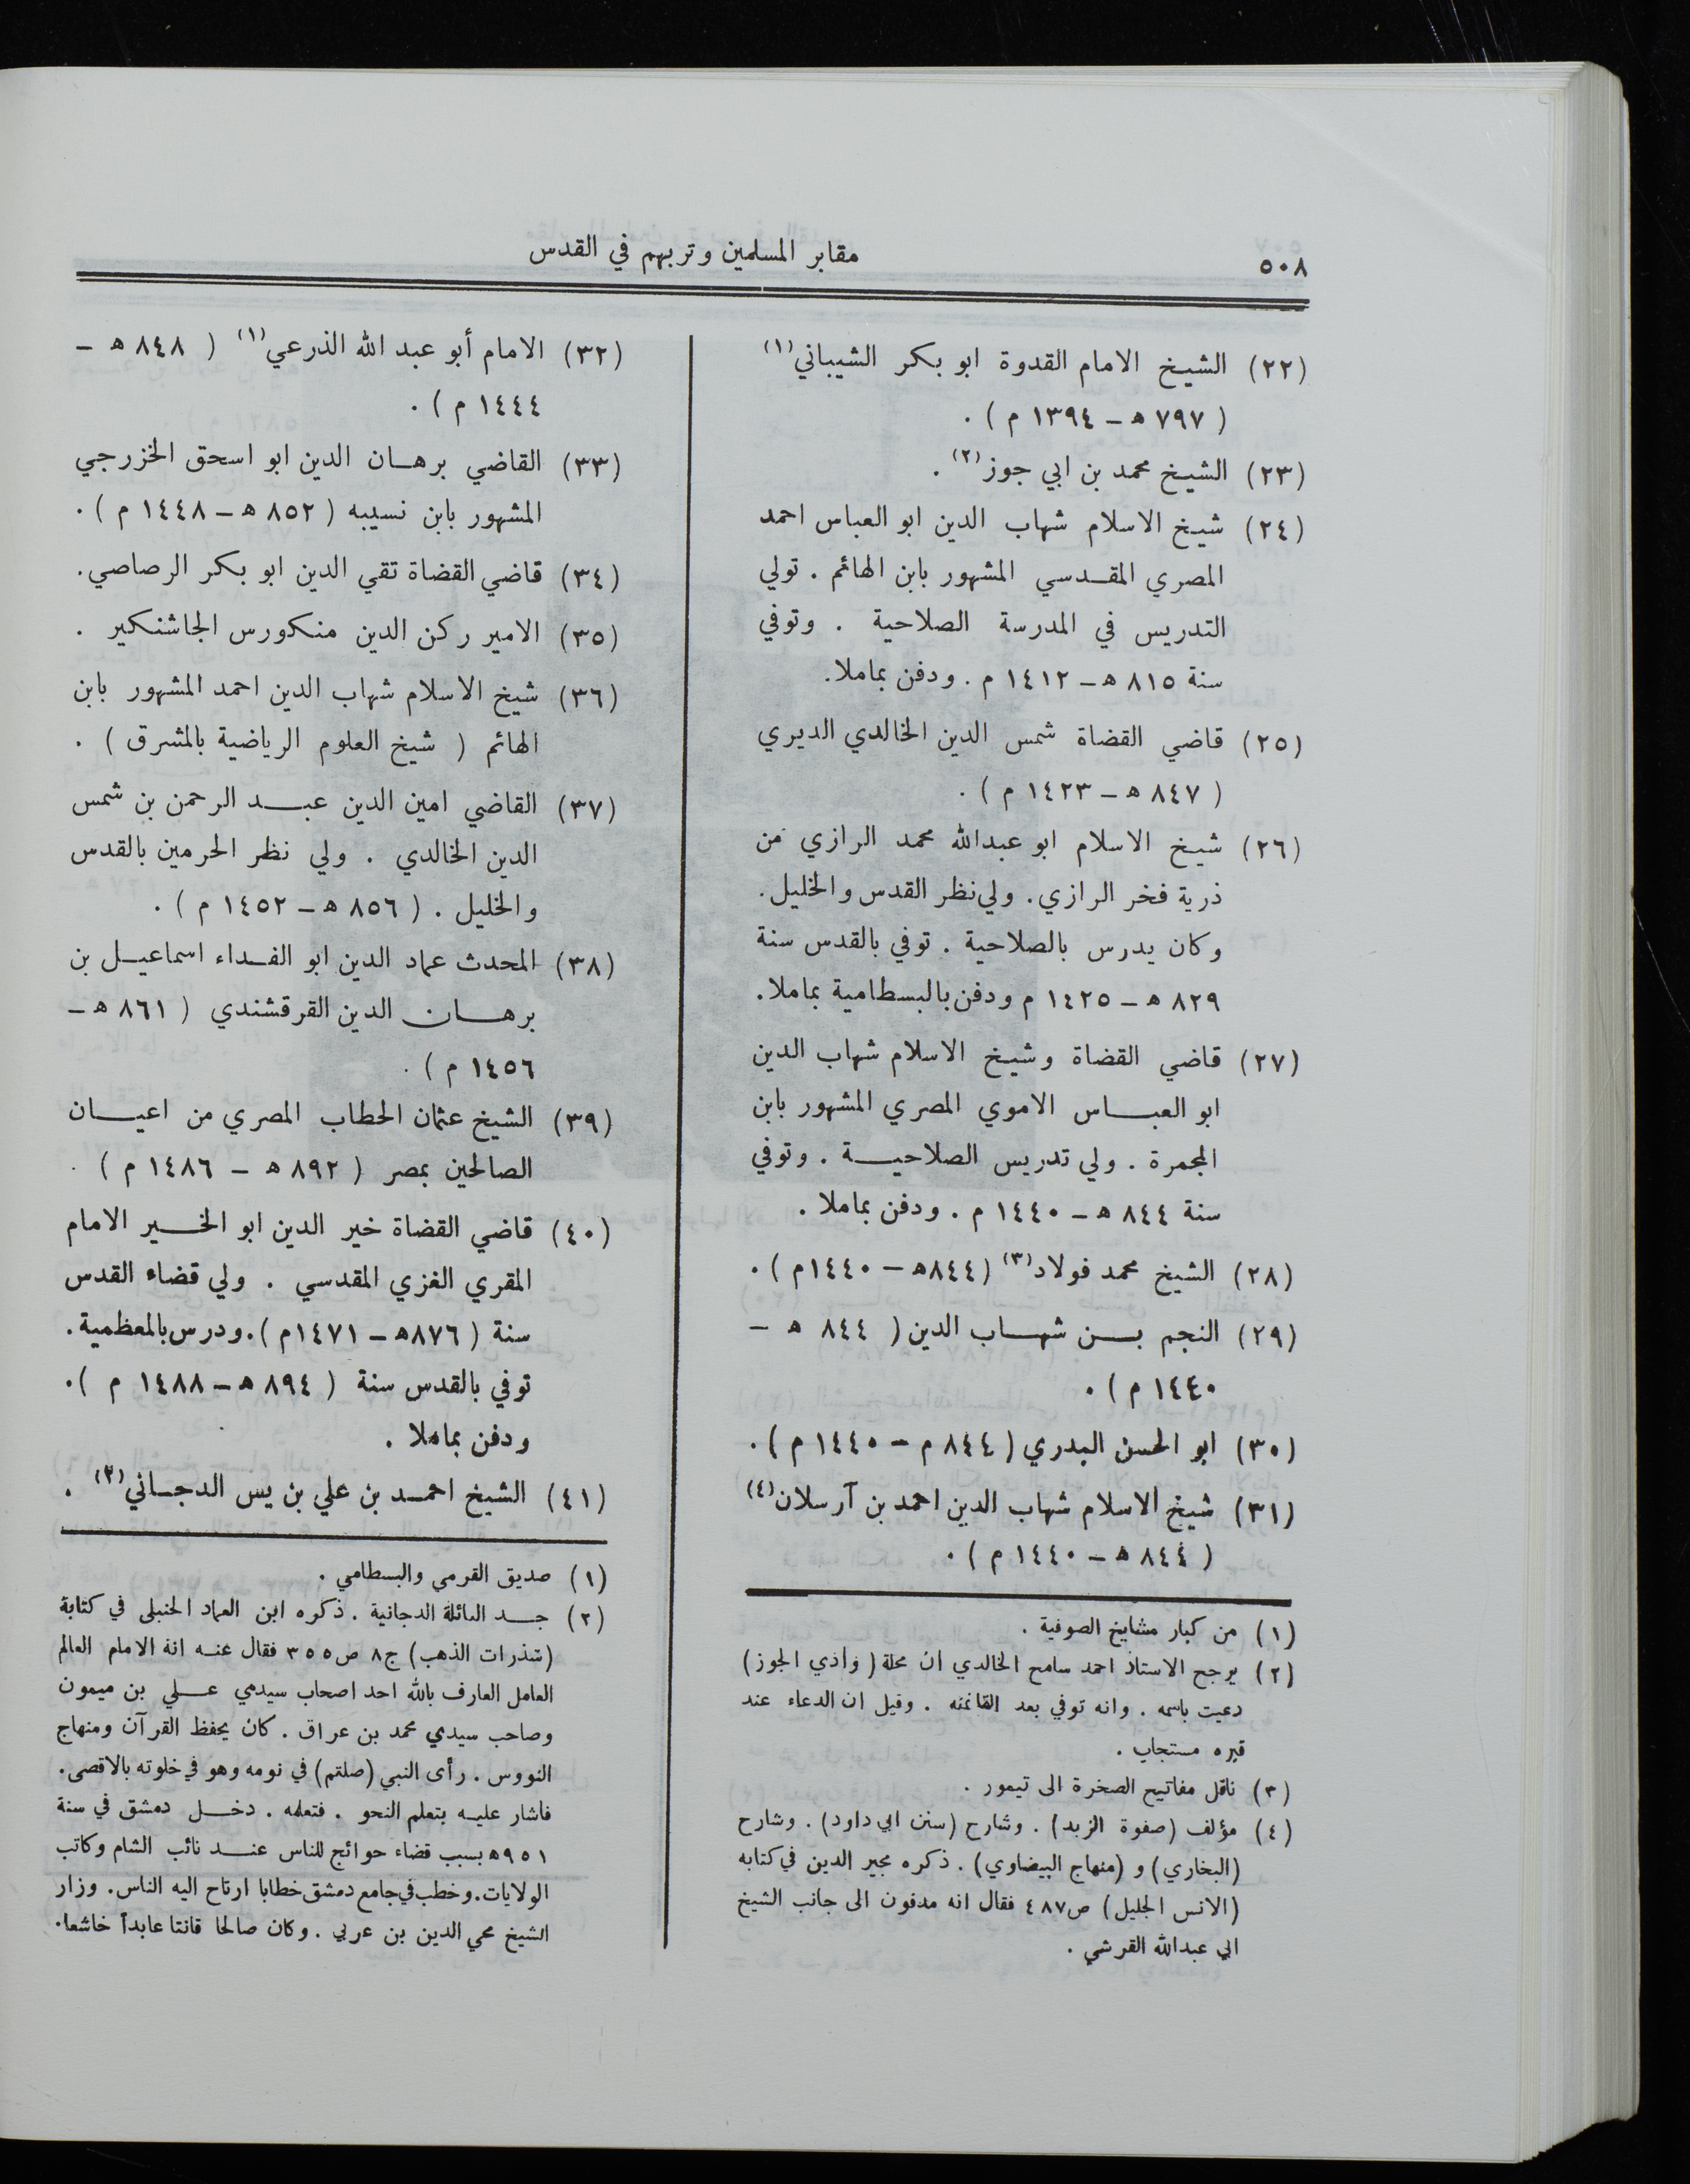 ٥٠٨
مقابر المسلمين وتربهم في القدس
(٢٢) الشيخ الامام القدوة ابو بكر الشيباني(١)
( ٧٩٧ ه – ١٣٩٤ م ) .
(٢٣) الشيخ محمد بن ابي جوز(٢) .
(٢٤) شيخ الاسلام شهاب الدين ابو العباس احمد
المصري المقدسي المشهور بابن الهائم . تولي
التدريس في المدرسة الصلاحية . وتوفي
سنة ٨١٥ ه – ١٤١٢ م . ودفن بماملا.
(٢٥) قاضي القضاة شمس الدين الخالدي الديري
( ٨٤٧ ه – ١٤٢٣ م ) .
(٢٦) شيخ الاسلام ابو عبدالله محمد الرازي من
ذرية فخر الرازي. ولي نظر القدس والخليل.
وكان يدرس بالصلاحية . توفي بالقدس سنة
٨٢٩ ه – ١٤٢٥ م ودفن بالبسطامية بماملا.
(٢٧) قاضي القضاة وشيخ الاسلام شهاب الدين
ابو العباس الاموي المصري المشهور بابن
المجمرة . ولي تدريس الصلاحية . وتوفي
سنة ٨٤٤ ه – ١٤٤٠ م . ودفن بماملا .
(٢٨) الشيخ محمد فولاد(٣) (٨٤٤ه – ١٤٤٠م ) .
(٢٩) النجم بن شهاب الدين ( ٨٤٤ ه –
١٤٤٠ م ) .
(٣٠) ابو الحسن البدري ( ٨٤٤ م – ١٤٤٠ م ) .
(٣١) شيخ الاسلام شهاب الدين احمد بن آرسلان(٤)
( ٨٤٤ ه – ١٤٤٠ م ) .
(١) من كبار مشايخ الصوفية .
(٢) يرجح الاستاذ احمد سامح الخالدي ان محلة ( وادي الجوز )
دعيت باسمه . وانه توفي بعد الثانمئه . وقيل ان الدعاء عند
قبره مستجاب .
(٣) ناقل مفاتيح الصخرة الى تيمور .
(٤) مؤلف (صفوة الزبد) . وشارح (سنن ابي داود) . وشارح
(البخاري) و (منهاج البيضاوي) . ذكره مجير الدين في كتابه
(الانس الجليل) ص٤٨٧ فقال انه مدفون الى جانب الشيخ
ابي عبدالله القرشي .
(٣٢) الامام أبو عبد الله الذرعي(١) ( ٨٤٨ ه –
١٤٤٤ م ) .
(٣٣) القاضي برهان الدين ابو اسحق الخزرجي
المشهور بابن نسيبه ( ٨٥٢ ه – ١٤٤٨ م ) .
(٣٤) قاضي القضاة تقي الدين ابو بكر الرصاصي.
(٣٥) الامير ركن الدين منكورس الجاشنكير .
(٣٦) شيخ الاسلام شهاب الدين احمد المشهور بابن
الهائم ( شيخ العلوم الرياضية بالمشرق ) .
(٣٧) القاضي امين الدين عبد الرحمن بن شمس
الدين الخالدي . ولي نظر الحرمين بالقدس
والخليل . ( ٨٥٦ ه – ١٤٥٢ م ) .
(٣٨) المحدث عماد الدين ابو الفداء اسماعيل بن
برهان الدين القرقشندي ( ٨٦١ ه –
١٤٥٦ م ) .
(٣٩) الشيخ عثمان الحطاب المصري من اعيان
الصالحين بمصر ( ٨٩٢ ه – ١٤٨٦ م ) .
(٤٠) قاضي القضاة خير الدين ابو الخير الامام
المقري الغزي المقدسي . ولي قضاء القدس
سنة ( ٨٧٦ه – ١٤٧١م ). ودرس بالمعظمية.
توفي بالقدس سنة ( ٨٩٤ ه – ١٤٨٨ م ).
ودفن بماملا .
(٤١) الشيخ احمد بن علي بن يس الدجاني(٢) .
(١) صديق القرمي والبسطامي .
(٢) جد العائلة الدجانية . ذكره ابن العماد الحنبلي في كتابة
(شذرات الذهب) ج٨ ص٣٥٥ فقال عنه انه الامام العالم
العامل العارف بالله احد اصحاب سيدي علي بن ميمون
وصاحب سيدي محمد بن عراق . كان يحفظ القرآن ومنهاج
النووس . رأى النبي (صلتم) في نومه وهو في خلوته بالاقصى.
فاشار عليه بتعلم النحو . فتعلمه . دخل دمشق في سنة
٩٥١ه بسبب قضاء حوائج للناس عند نائب الشام وكاتب
الولايات. وخطب في جامع دمشق خطابا ارتاح اليه الناس. وزار
الشيخ محي الدين بن عربي . وكان صالحا قانتا عابداً خاشعا.